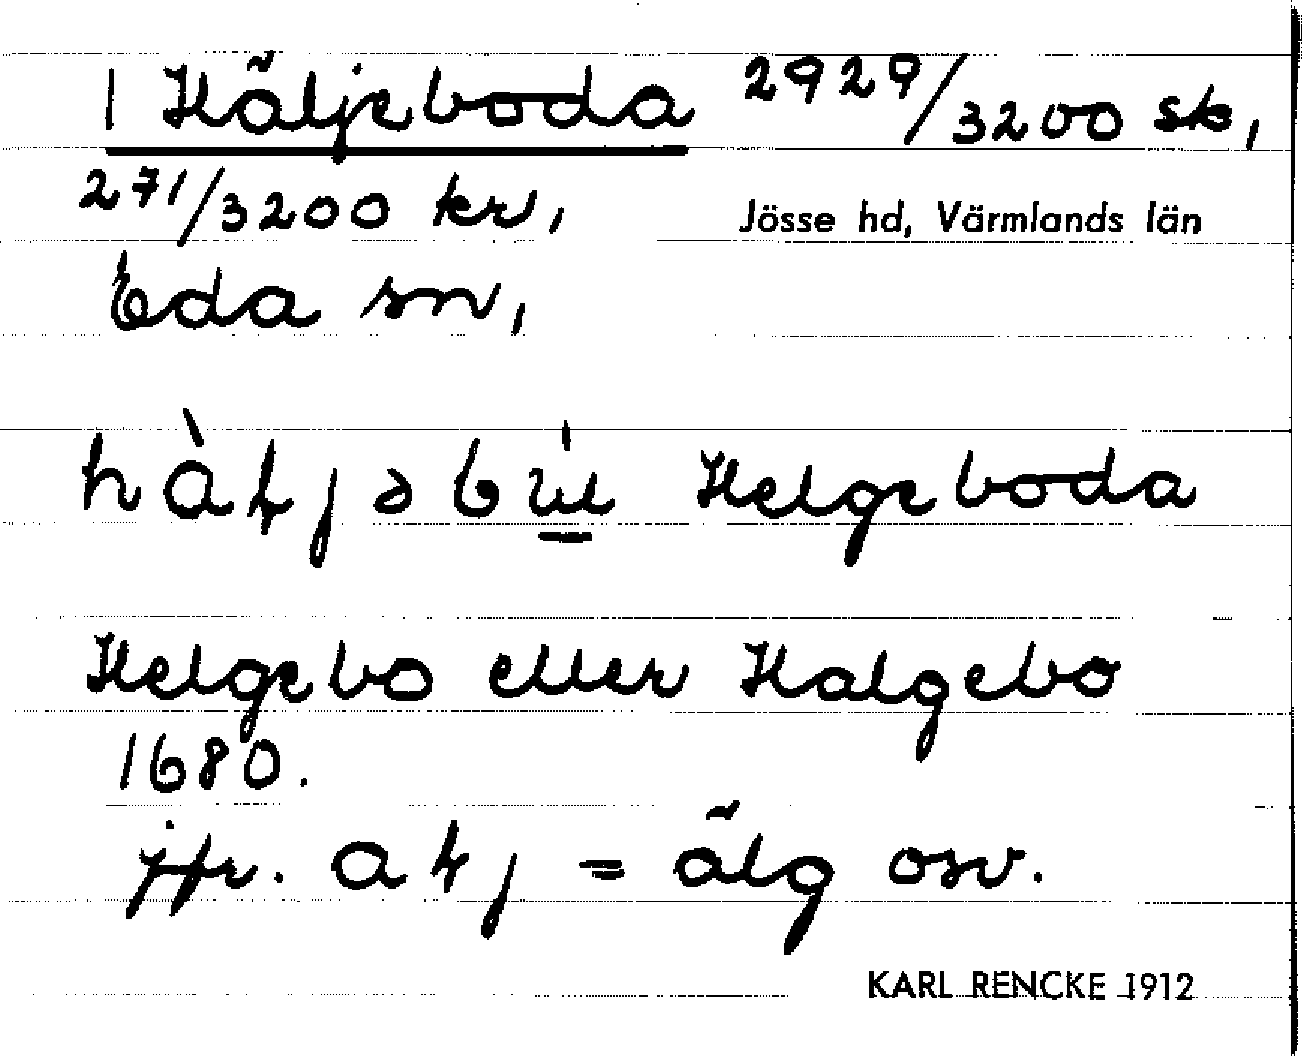 1 Häljeboda 2929/3200 sk,
271/3200 kr, Jösse hd, Värmlands län
Eda sn,
hàłjəbɯ̲́ Helgeboda
Helgebo eller Halgebo
1680.
jfr. ałj = älg osv.
KARL RENCKE 1912